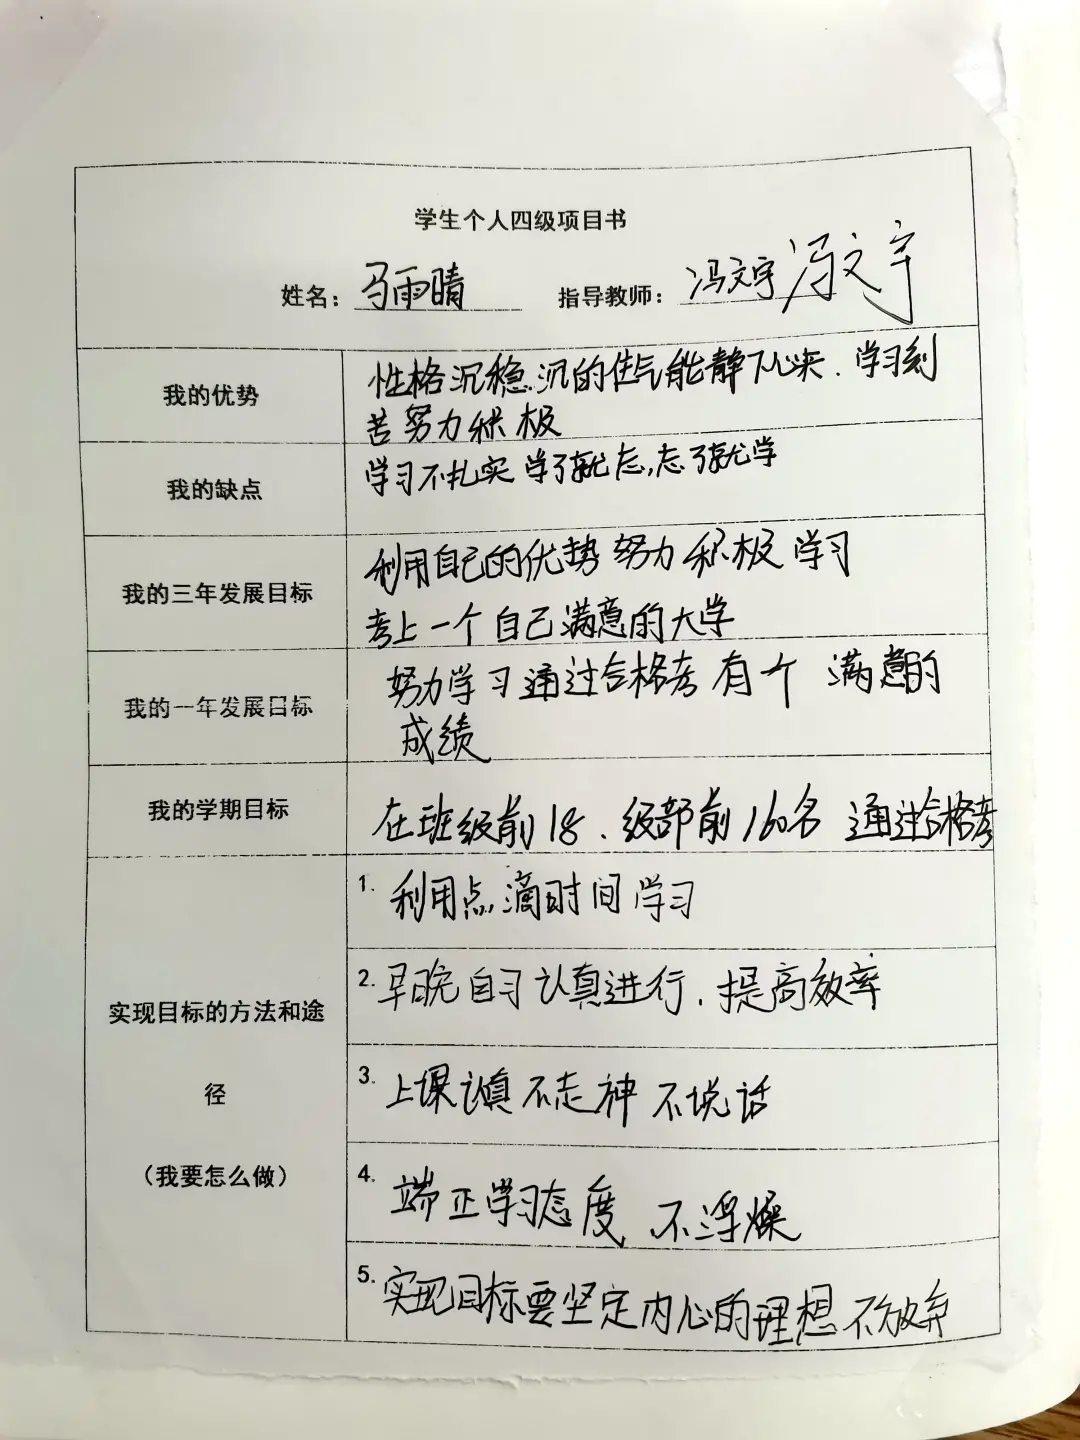 学生个人四级项目书
姓名：马雨晴 指导教师：冯文宇 冯文宇
我的优势
性格沉稳.沉的住气能静下心来.学习刻
苦努力积极
我的缺点
学习不扎实 学了就忘,忘了就学
我的三年发展目标
利用自己的优势努力积极学习
考上一个自己满意的大学
我的一年发展目标
努力学习通过合格考有个 满意的
成绩
我的学期目标
在班级前18、级部前160名 通过合格考
实现目标的方法和途
径
（我要怎么做）
1. 利用点滴时间学习
2. 早晚自习认真进行，提高效率
3. 上课认真不走神 不说话
4. 端正学习态度 不浮燥
5. 实现目标要坚定内心的理想 不放弃